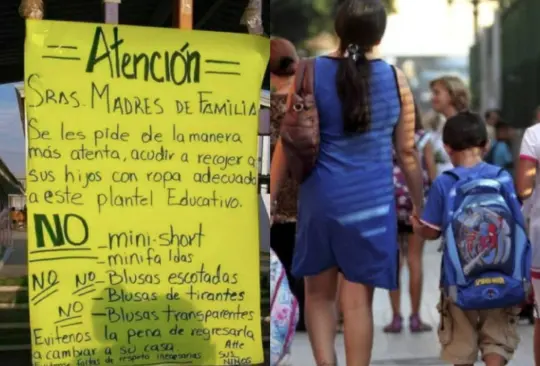 = Atención =
SRAS. MADRES DE FAMILIA
Se les pide de la manera
más atenta, acudir a recojer a
sus hijos con ropa adecuada
a este plantel Educativo.
NO - mini-short
minifaldas
NO NO - Blusas escotadas
- Blusas de tirantes
NO - Blusas transparentes
Evitenos la pena de regresarla
a cambiar a su casa. Atte
Evitemos faltas de respeto inecesarias SUS
NIÑOS